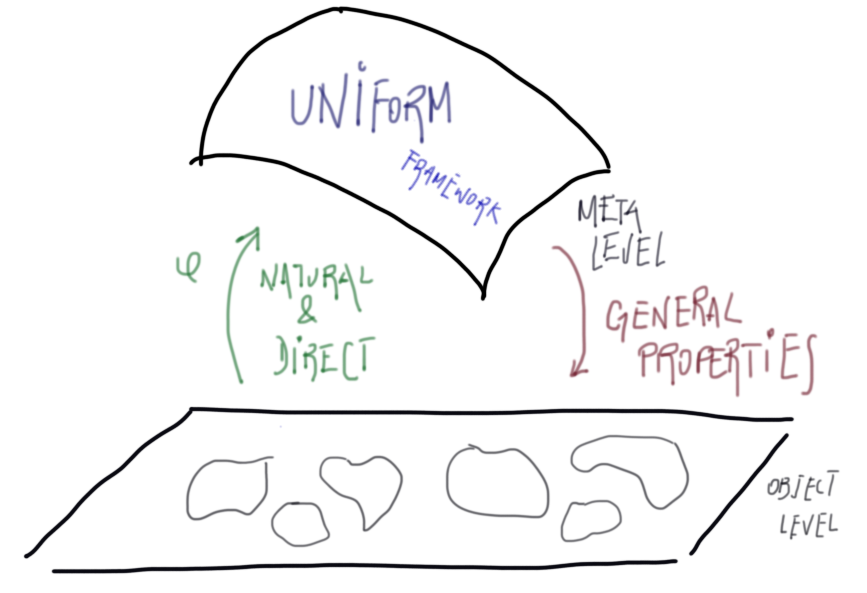 UNIFORM
FRAMEWORK
META
LEVEL
φ
NATURAL
&
DIRECT
GENERAL
PROPERTIES
OBJECT
LEVEL